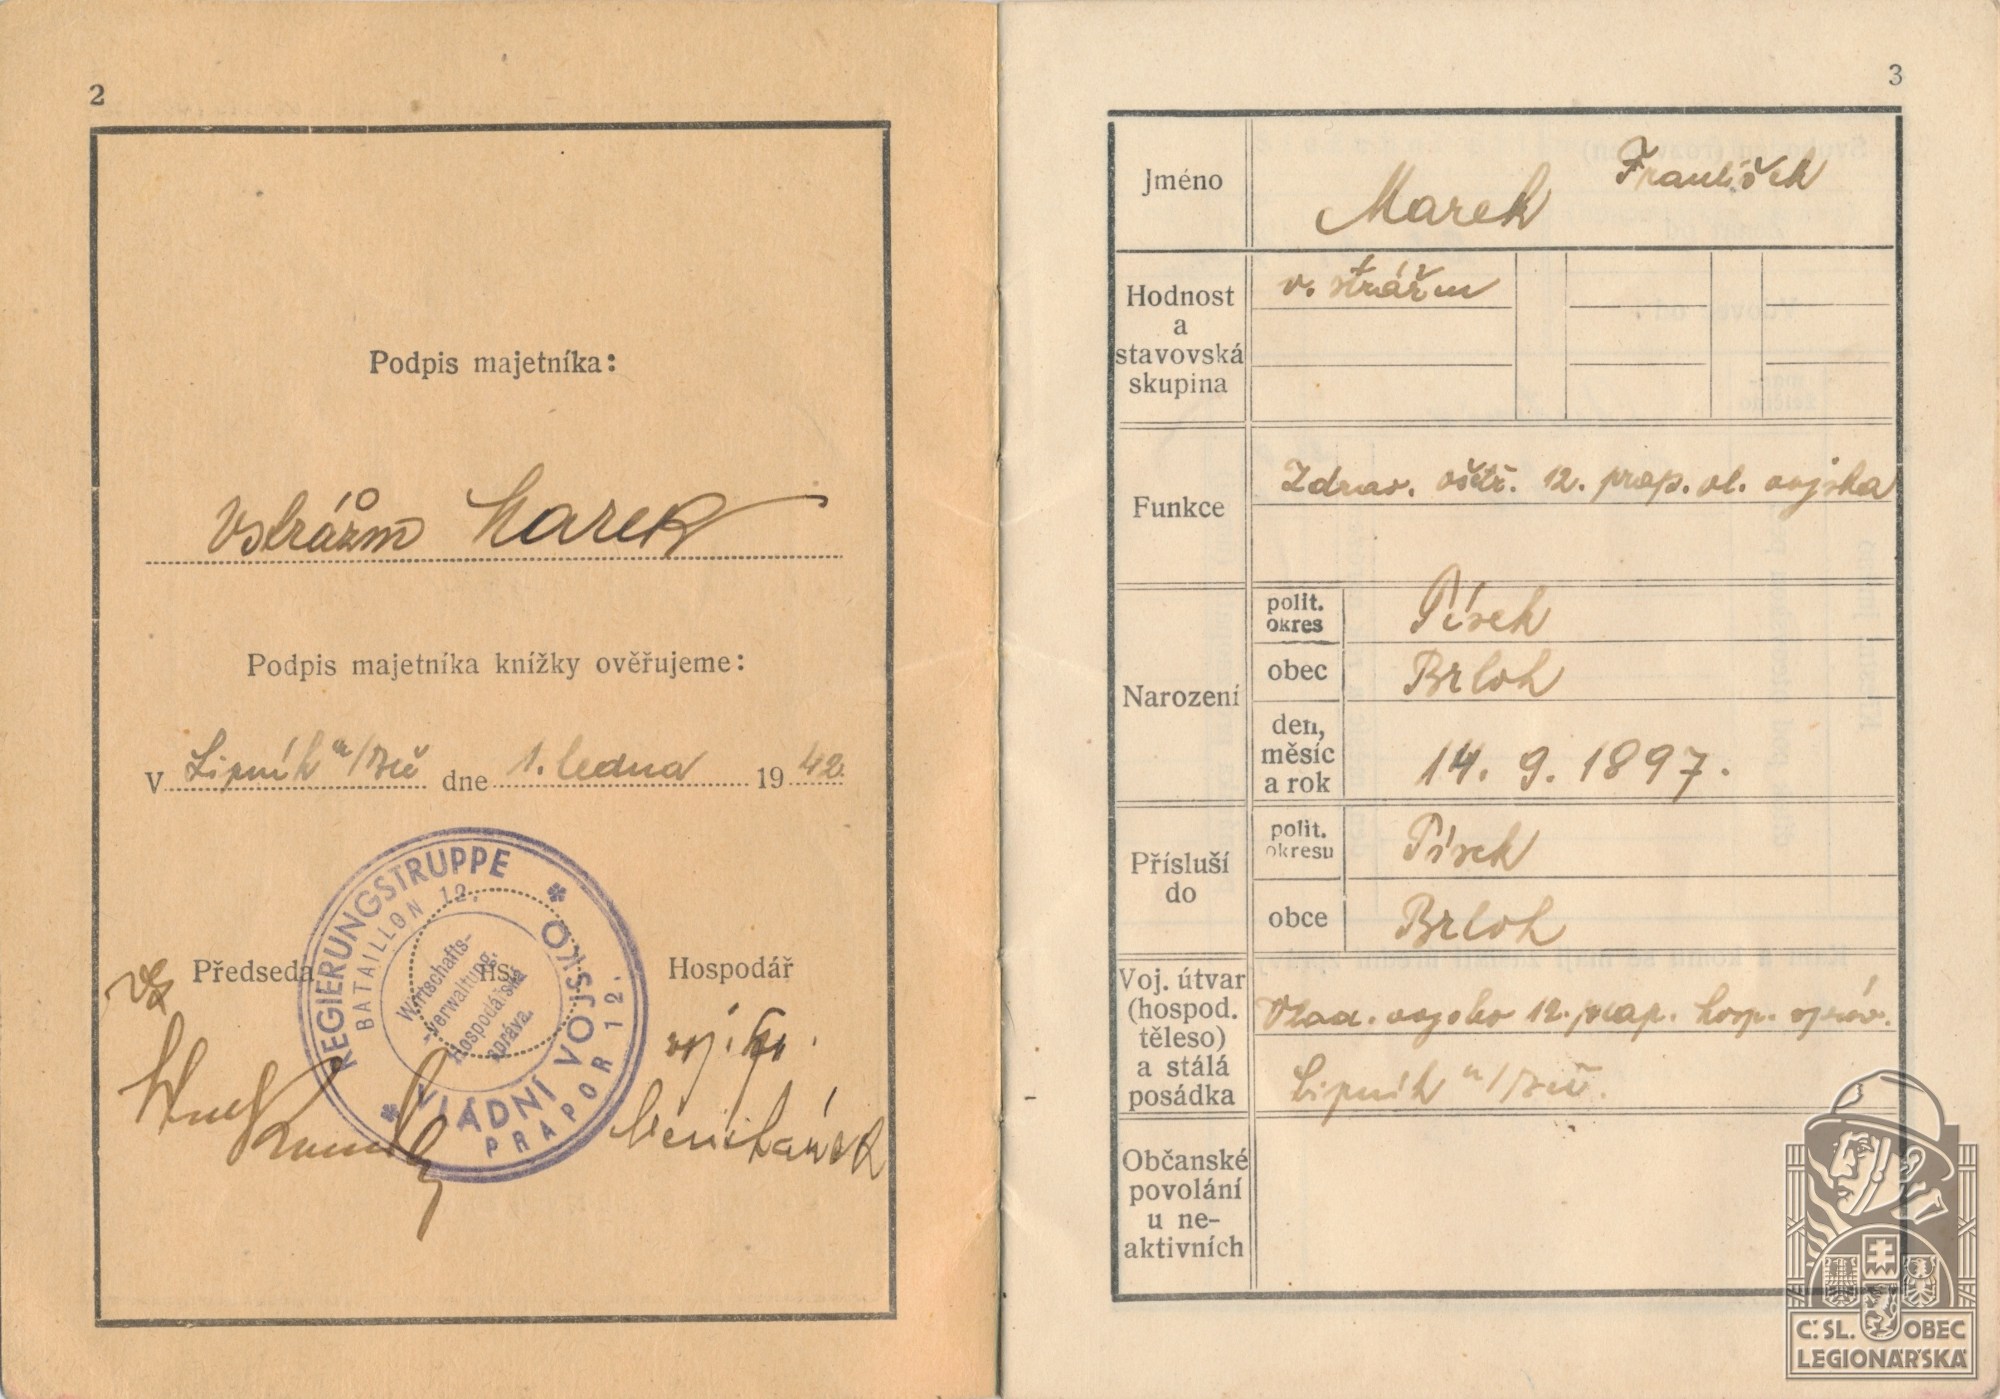 2
Podpis majetníka:
Vstrážm Marek
Podpis majetníka knížky ověřujeme:
V Lipník n/Beč dne 1. ledna 1942.
REGIERUNGSTRUPPE
BATAILLON 12.
Wirtschafts-
-verwaltung.
Hospodářská
správa.
VLÁDNÍ VOJSKO
PRAPOR 12.
Předseda
Hospodář
3
Jméno
Marek František
Hodnost
a
stavovská
skupina
v. strážm
Funkce
Zdrav. ošetř. 12. prap. vl. vojska
Narození
polit.
okres
Písek
obec
Brloh
den,
měsíc
a rok
14. 9. 1897.
Přísluší
do
polit.
okresu
Písek
obce
Brloh
Voj. útvar
(hospod.
těleso)
a stálá
posádka
Vlád. vojsko 12. prap. hosp. správ.
Lipník n/Beč.
Občanské
povolání
u ne-
aktivních
Č. SL. OBEC
LEGIONÁŘSKÁ